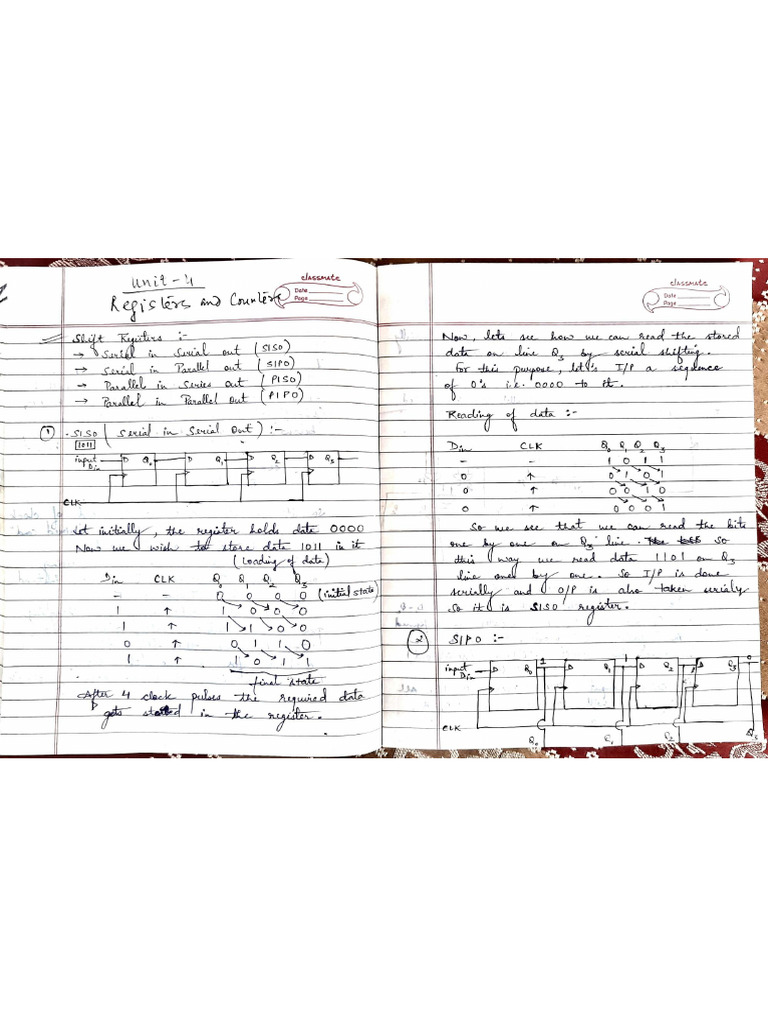 Unit-4
Registers and Counters
classmate
Date
Page
Shift Registers :-
→ Serial in Serial out (SISO)
→ Serial in Parallel out (SIPO)
→ Parallel in Series out (PISO)
→ Parallel in Parallel Out (PIPO)
① SISO (Serial in Serial Out) :-
1011
input D Q0 D Q1 D Q2 D Q3
Din
CLK
Let initially, the register holds data 0000
Now we wish to store data 1011 in it
(Loading of data)
Din CLK Q0 Q1 Q2 Q3
- - 0 0 0 0 (initial state)
1 ↑ 1 0 0 0
1 ↑ 1 1 0 0
0 ↑ 0 1 1 0
1 ↑ 1 0 1 1
final state
After 4 clock pulses the required data
gets stored in the register.
classmate
Date
Page
Now, lets see how we can read the stored
data on line Q3 by serial shifting.
For this purpose, let's I/P a sequence
of 0's i.e. 0000 to it.
Reading of data :-
Din CLK Q0 Q1 Q2 Q3
- - 1 0 1 1
0 ↑ 0 1 0 1
0 ↑ 0 0 1 0
0 ↑ 0 0 0 1
So we see that we can read the bits
one by one on Q3 line. So
this way we read data 1101 on Q3
line one by one. So I/P is done
serially and O/P is also taken serialy
So it is SISO register.
② SIPO :-
input D Q0 1 D Q1 1 D Q2 D Q3 0
Din
CLK
Q0 Q1 Q2 Q3